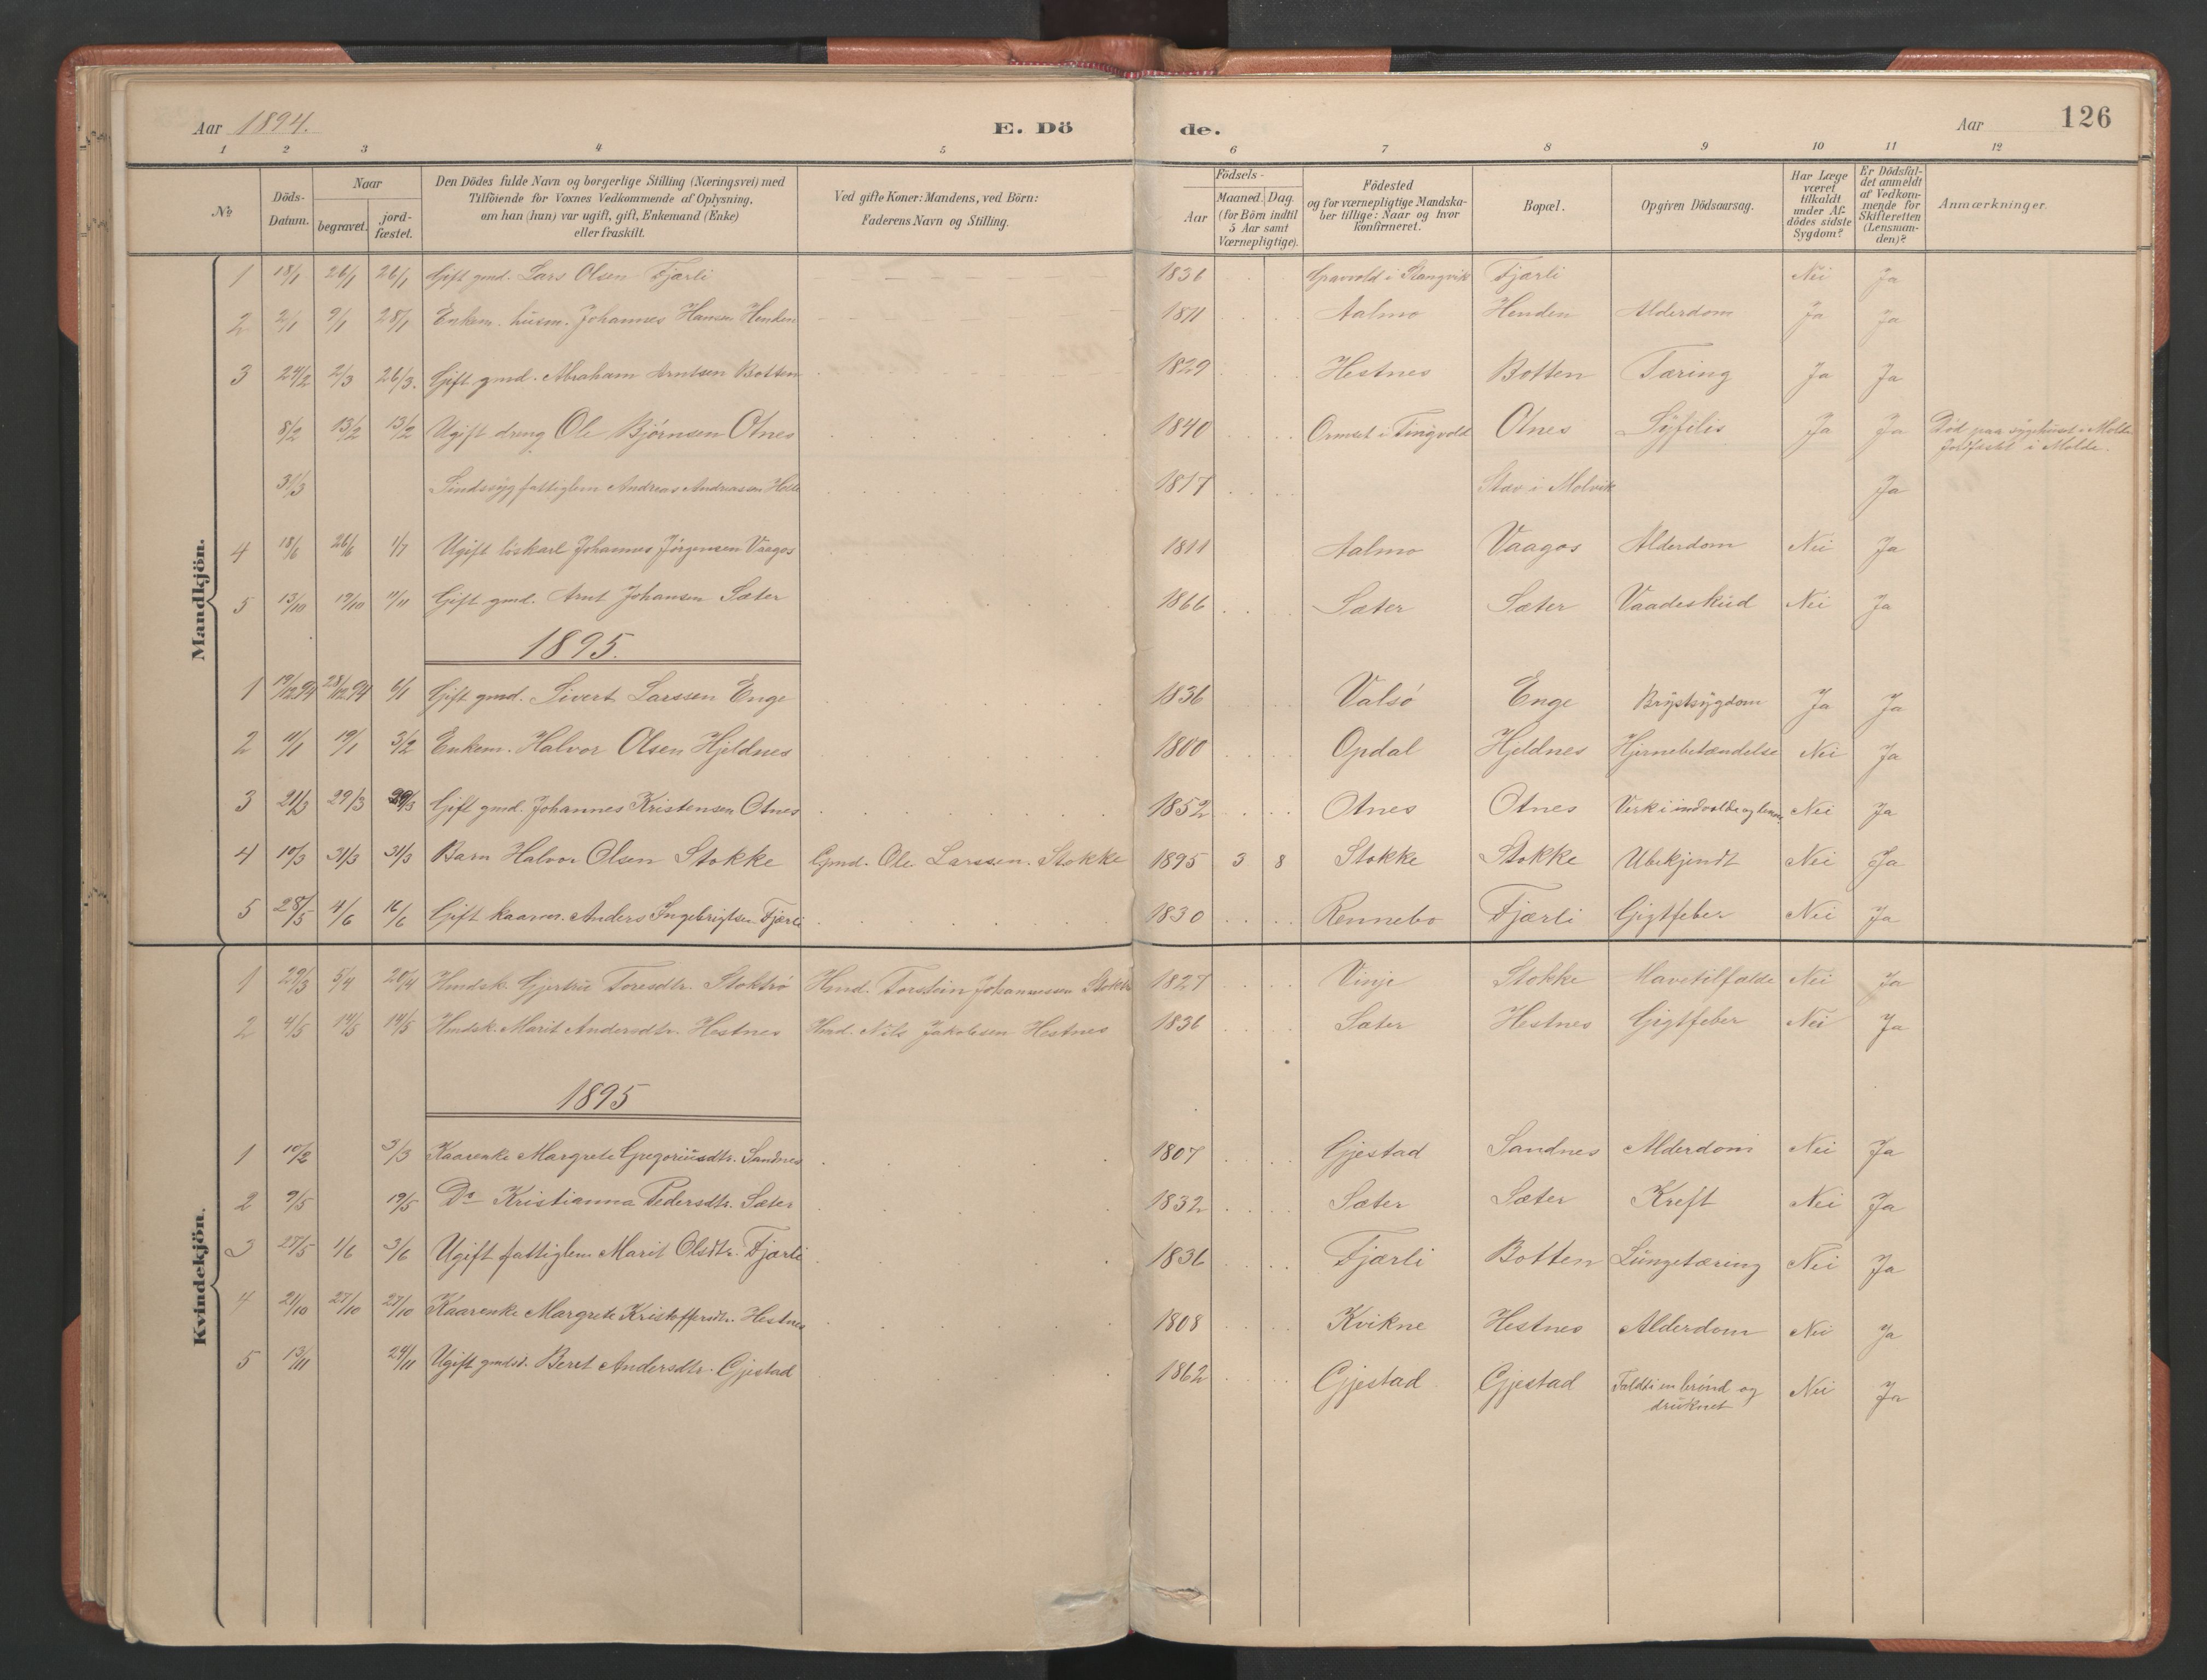 Aar 1894. E. Dö de. Aar 126
1 2 3 4 5 6 7 8 9 10 11 12
No
Döds-Datum.
Naar
begravet.
jord-fæstet.
Den Dödes fulde Navn og borgerlige Stilling (Næringsvei) med
Tilföiende for Voxnes Vedkommende af Oplysning,
om han (hun) var ugift, gift, Enkemand (Enke)
eller fraskilt.
Ved gifte Koner: Mandens, ved Börn:
Faderens Navn og Stilling.
Födsels-
Aar
Maaned. Dag.
(for Börn indtil
5 Aar samt
Værnepligtige).
Födested
og for værnepligtige Mandska-
ber tillige: Naar og hvor
konfirmeret.
Bopæl.
Opgiven Dödsaarsag.
Har Læge
været
tilkaldt
under Af-
dödes sidste
Sygdom?
Er Dödsfal-
det anmeldt
af Vedkom-
mende for
Skifteretten
(Lensman-
den)?
Anmærkninger.
Mandkjön.
1 18/1 26/1 26/1 Gift gmd. Lars Olsen Fjærli 1836 i Stangvik Fjærli Nei Ja
2 2/1 9/1 28/1 Enkem. husm. Johannes Hansen Henden 1811 Aalmo Henden Alderdom Ja Ja
3 24/2 2/3 26/3. Gift gmd. Abraham Arntsen Botten 1829 Hestnes Botten Tæring Ja Ja
8/2 13/2 13/2 Ugift dreng Ole Bjørnsen Otnes 1840 Ormset i Tingvold Otnes Syfilis Ja Ja Død paa sygehuset i Molde
Jordfæstet i Molde.
31/3 Sindssyg fattiglem Andreas Andreassen 1817 Stav i Malvik Ja
4 18/6 26/6 1/7 Ugift løskarl Johannes Jørgensen Vaagos 1811 Aalmo Vaagos Alderdom Nei Ja
5 13/10 19/10 11/11 Gift gmd. Arnt Johansen Sæter 1866 Sæter Sæter Vaadeskud Nei Ja
1895.
1 19/12 94 28/12 94 6/1 Gift gmd. Sivert Larssen Enge 1836 Valsø Enge Brystsygdom Ja Ja
2 11/1 19/1 3/2 Enkem. Halvor Olsen Hjeldnes 1800 Opdal Hjeldnes Hjernebetændelse Nei Ja
3 21/3 29/3 Gift gmd. Johannes Kristensen Otnes 1852 Otnes Otnes Verk i indvolde og Nei Ja
4 10/3 31/3 31/3 Barn Halvor Olsen Stokke Gmd. Ole Larssen Stokke 1895 3 8 Stokke Stokke Ubekjendt Nei Ja
5 28/5 4/6 16/6 Gift kaarm. Anders Ingebrigtsen Fjærli 1830 Rennebo Fjærli Gigtfeber Nei Ja
Kvindekjön.
1 29/3 5/4 20/4 Hmdsk. Gjertru Toresdtr. Stokkrø Hmd. Torstein Johannessen 1827 Vinje Stokke Mavetilfælde Nei Ja
2 4/5 14/5 14/5 Hmdsk. Marit Andersdtr. Hestnes Hmd. Nils Jakobsen Hestnes 1836 Sæter Hestnes Gigtfeber Nei Ja
1895
1 10/2 3/3 Kaarenke Margrete Gregoriusdtr. Sandnes 1807 Gjestad Sandnes Alderdom Nei Ja
2 9/5 19/5 Do Kristianna Pedersdtr. Sæter 1832 Sæter Sæter Kreft Nei Ja
3 27/5 1/6 3/6 Ugift fattiglem Marit Olsdtr. Fjærli 1836 Fjærli Botten Lungetæring Nei Ja
4 21/10 27/10 27/10 Kaarenke Margrete Kristoffersdtr. Hestnes 1808 Kvikne Hestnes Alderdom Nei Ja
5 13/11 24/11 Ugift gmdsd. Beret Andersdtr. Gjestad 1862 Gjestad Gjestad Faldt i en brønd og
druknet Nei Ja